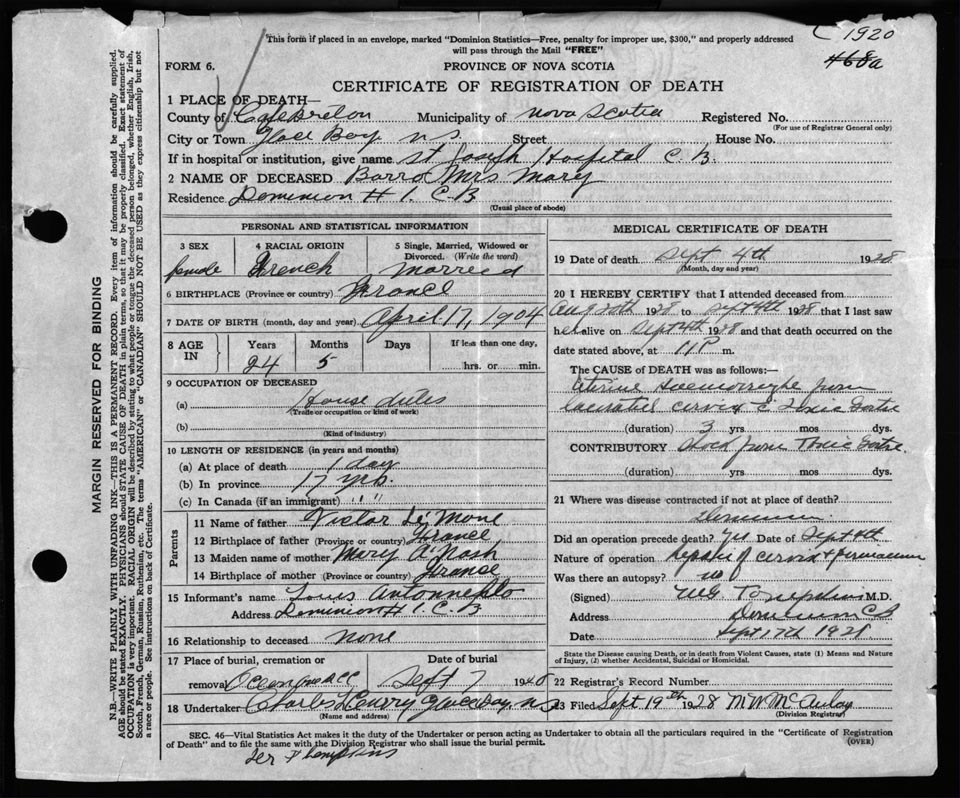 This form if placed in an envelope, marked "Dominion Statistics—Free, penalty for improper use, $300," and properly addressed
will pass through the Mail "FREE"
C 1920
468a
FORM 6.
PROVINCE OF NOVA SCOTIA
CERTIFICATE OF REGISTRATION OF DEATH
1 PLACE OF DEATH—
County of Cape Breton Municipality of Nova Scotia Registered No.
(For use of Registrar General only)
City or Town Glace Bay N.S. Street House No.
If in hospital or institution, give name St Joseph Hospital C. B.
2 NAME OF DECEASED Barro Mrs Mary
Residence Dominion # 1. C.B
(Usual place of abode)
PERSONAL AND STATISTICAL INFORMATION
3 SEX 4 RACIAL ORIGIN 5 Single, Married, Widowed or
Divorced. (Write the word)
female French Married
6 BIRTHPLACE (Province or country) France
7 DATE OF BIRTH (month, day and year) April 17, 1904
8 AGE IN Years Months Days If less than one day,
24 5 hrs. or min.
9 OCCUPATION OF DECEASED
(a) House duties
(Trade or occupation or kind of work)
(b)
(Kind of industry)
10 LENGTH OF RESIDENCE (in years and months)
(a) At place of death 1 day
(b) In province 17 yrs.
(c) In Canada (if an immigrant) " "
Parents
11 Name of father Victor Le'Mone
12 Birthplace of father (Province or country) France
13 Maiden name of mother Mary
14 Birthplace of mother (Province or country) France
15 Informant's name Louis
Address Dominion # 1. C.B
16 Relationship to deceased none
17 Place of burial, cremation or Date of burial
removal Sept 7 19
18 Undertaker Charles Henry Glace Bay, N.S
(Name and address)
MEDICAL CERTIFICATE OF DEATH
19 Date of death Sept 4th 1928
(Month, day and year)
20 I HEREBY CERTIFY that I attended deceased from
Aug 1928 to Sept 4th 1928 that I last saw
her alive on Sept 4th 1928 and that death occurred on the
date stated above, at 11 P m.
The CAUSE of DEATH was as follows:—
Uterine Haemorraghe from
cervix
(duration) 3 yrs mos dys.
CONTRIBUTORY Shock from
(duration) yrs mos dys.
21 Where was disease contracted if not at place of death?
Dominion
Did an operation precede death? Yes Date of Sept 4th
Nature of operation Repair of cervix &
Was there an autopsy? no
(Signed) M.D.
Address Dominion CB
Date Sept 17th 1928
State the Disease causing Death, or in death from Violent Causes, state (1) Means and Nature
of Injury, (2) whether Accidental, Suicidal or Homicidal.
22 Registrar's Record Number
23 Filed Sept 19th 1928 M W McAulay
(Division Registrar)
SEC. 46—Vital Statistics Act makes it the duty of the Undertaker or person acting as Undertaker to obtain all the particulars required in the "Certificate of Registration
of Death" and to file the same with the Division Registrar who shall issue the burial permit.
(OVER)
MARGIN RESERVED FOR BINDING
N.B.—WRITE PLAINLY WITH UNFADING INK—THIS IS A PERMANENT RECORD. Every item of information should be carefully supplied.
AGE should be stated EXACTLY. PHYSICIANS should STATE CAUSE OF DEATH in plain terms, so that it may be properly classified. Exact statement of
OCCUPATION is very important. RACIAL ORIGIN will be described by stating to what people or tongue the deceased person belonged, whether English, Irish,
Scotch, French, German, Russian, Ruthenian, etc. The terms "AMERICAN" or "CANADIAN" SHOULD NOT BE USED as they express citizenship but not
a race or people. See instructions on back of Certificate.